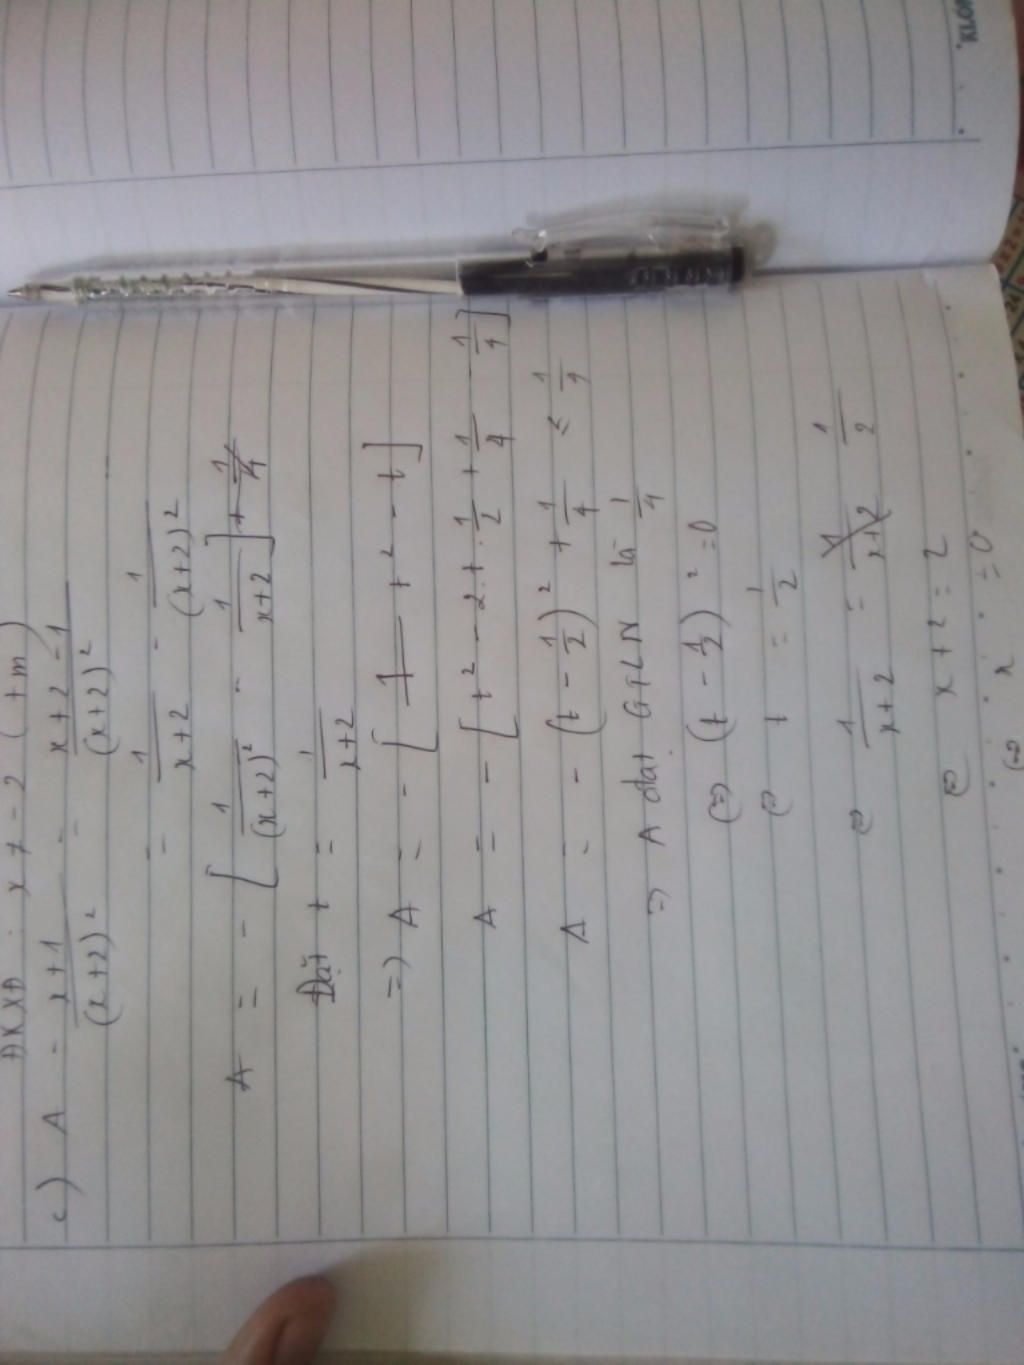 ĐKXĐ : x ≠ -2 (tm)
c) A = \frac{x+1}{(x+2)^2} = \frac{x+2-1}{(x+2)^2}
= \frac{1}{x+2} - \frac{1}{(x+2)^2}
A = - [ \frac{1}{(x+2)^2} - \frac{1}{x+2} ]
Đặt t = \frac{1}{x+2}
=) A = - [ t^2 - t ]
A = - [ t^2 - 2.t.\frac{1}{2} + \frac{1}{4} - \frac{1}{4} ]
A = - (t - \frac{1}{2})^2 + \frac{1}{4} ≤ \frac{1}{4}
=) A đạt GTLN là \frac{1}{4}
(=) (t - \frac{1}{2})^2 = 0
(=) t = \frac{1}{2}
(=) \frac{1}{x+2} = \frac{1}{2}
(=) x+2 = 2
(=) x = 0
KLON